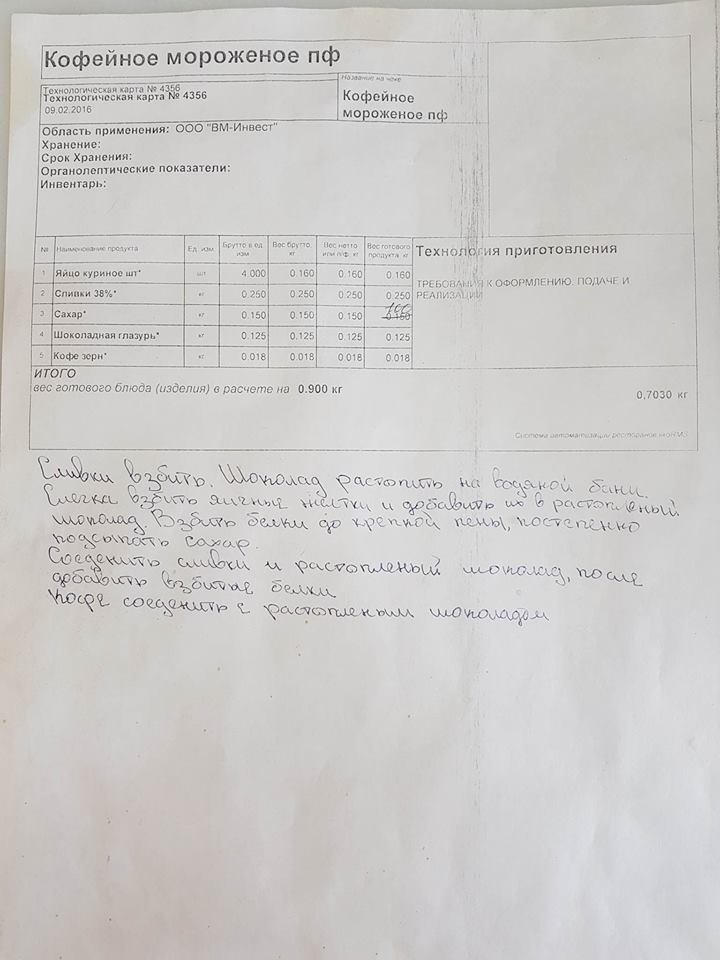 Кофейное мороженое пф
Технологическая карта № 4356
Технологическая карта № 4356
09.02.2016
Название на чеке
Кофейное
мороженое пф
Область применения: ООО "ВМ-Инвест"
Хранение:
Срок Хранения:
Органолептические показатели:
Инвентарь:
№ Наименование продукта Ед. изм. Брутто в ед. изм. Вес брутто, кг Вес нетто или п/ф, кг Вес готового продукта, кг
1 Яйцо куриное шт* шт 4.000 0.160 0.160 0.160
2 Сливки 38%* кг 0.250 0.250 0.250 0.250
3 Сахар* кг 0.150 0.150 0.150 0.150
4 Шоколадная глазурь* кг 0.125 0.125 0.125 0.125
5 Кофе зерн* кг 0.018 0.018 0.018 0.018
Технология приготовления
ТРЕБОВАНИЯ К ОФОРМЛЕНИЮ, ПОДАЧЕ И
РЕАЛИЗАЦИИ
ИТОГО
вес готового блюда (изделия) в расчете на 0.900 кг
0,7030 кг
Система автоматизации ресторанов
Сливки взбить. Шоколад растопить на водяной бани.
Слегка взбить яичные желтки и добавить их в растопленый
шоколад. Взбить белки до крепной пены, постепенно
подсыпать сахар.
Соеденить сливки и растопленый шоколад, после
добавить взбитые белки
Кофе соеденить с растопленым шоколадом